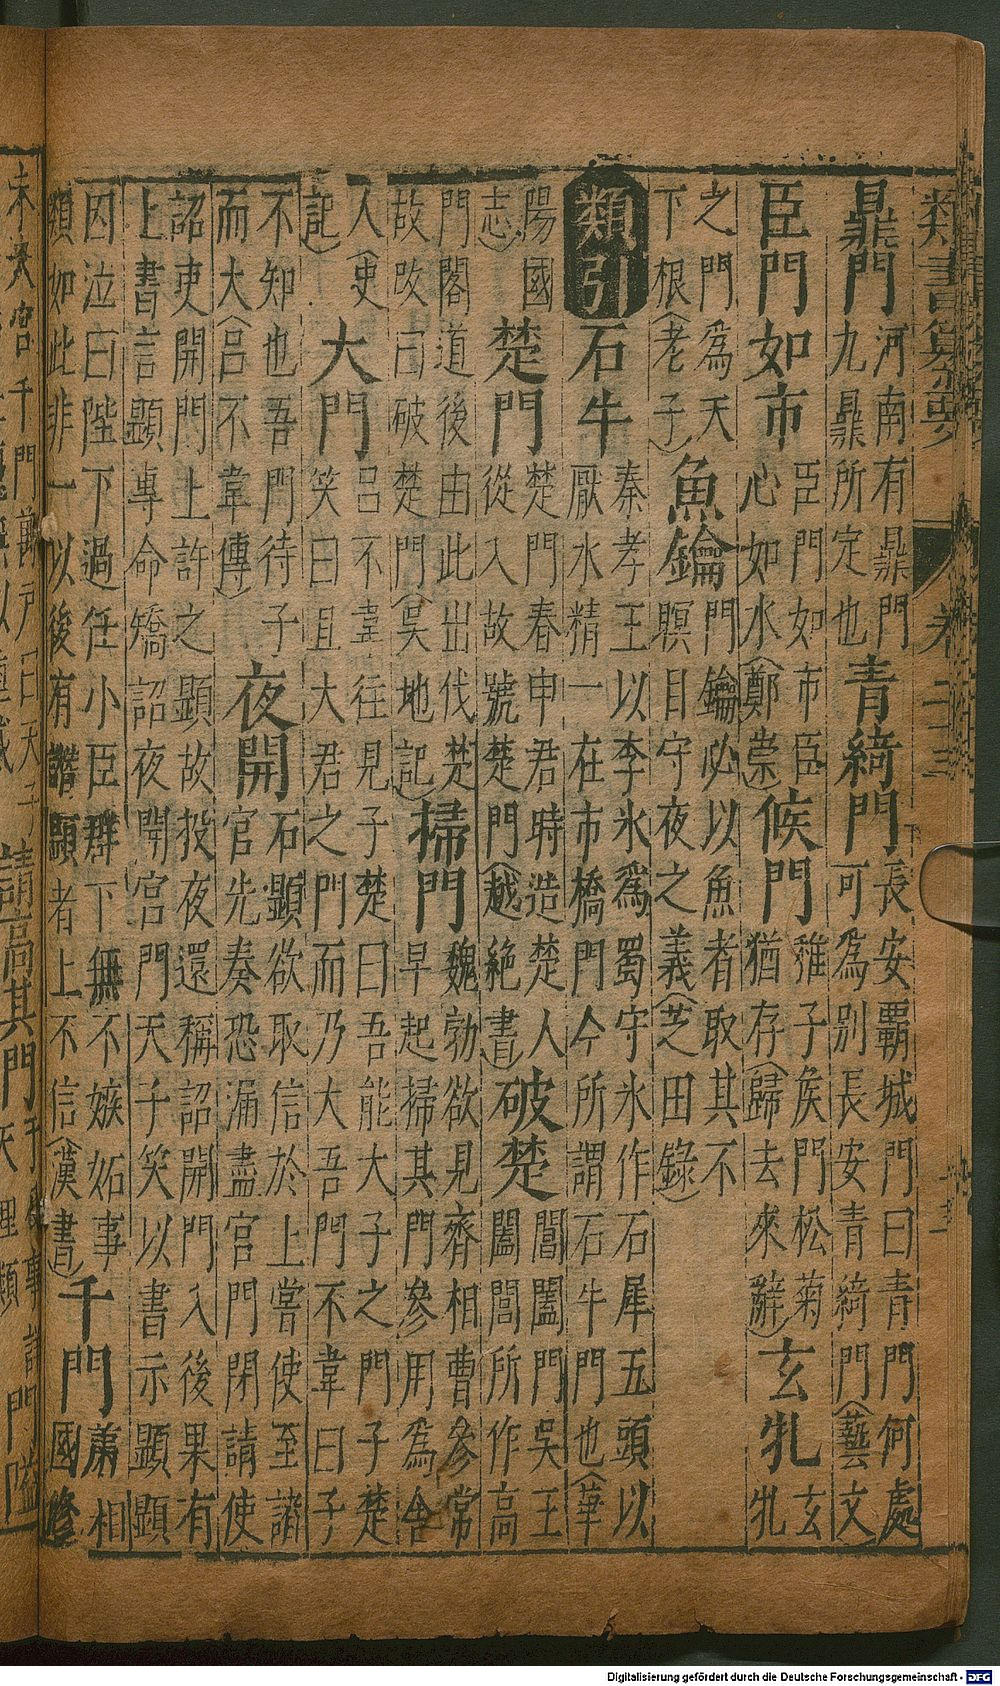 類書纂要 卷之十三
鼎門 河南有鼎門九鼎所定也 青綺門 長安霸城門曰青門何處可為別長安青綺門(藝文)
臣門如市 臣門如市臣心如水(鄭崇) 候門 稚子侯門松菊猶存(歸去來辭) 玄牝 玄牝
之門為天下根(老子) 魚鑰 門鑰必以魚者取其不瞑目守夜之義(芝田錄)
類引 石牛 秦孝王以李氷為蜀守氷作石犀五頭以厭水精一在市橋門今所謂石牛門也(華
陽國志) 楚門 楚門春申君時造楚人從入故號楚門(越絶書) 破楚 閶闔門吳王闔閭所作高
門閣道後由此出伐楚故改曰破楚門(吳地記) 掃門 魏勃欲見齊相曹參常早起掃其門參用為舍
人(史記) 大門 呂不韋往見子楚曰吾能大子之門子楚笑曰且大君之門而乃大吾門不韋曰子
不知也吾門待子而大(呂不韋傳) 夜開 石顯欲取信於上嘗使至諸官先奏恐漏盡宮門閉請使
詔吏開門上許之顯故投夜還稱詔開門入後果有上書言顯專命矯詔夜開宮門天子笑以書示顯顯
因泣曰陛下過任小臣群下無不嫉妬事類如此非一以後有譖顯者上不信(漢書) 千門 蕭相國修
未央宮千門萬戶曰天子
請高其門 于
Digitalisierung gefördert durch die Deutsche Forschungsgemeinschaft - DFG